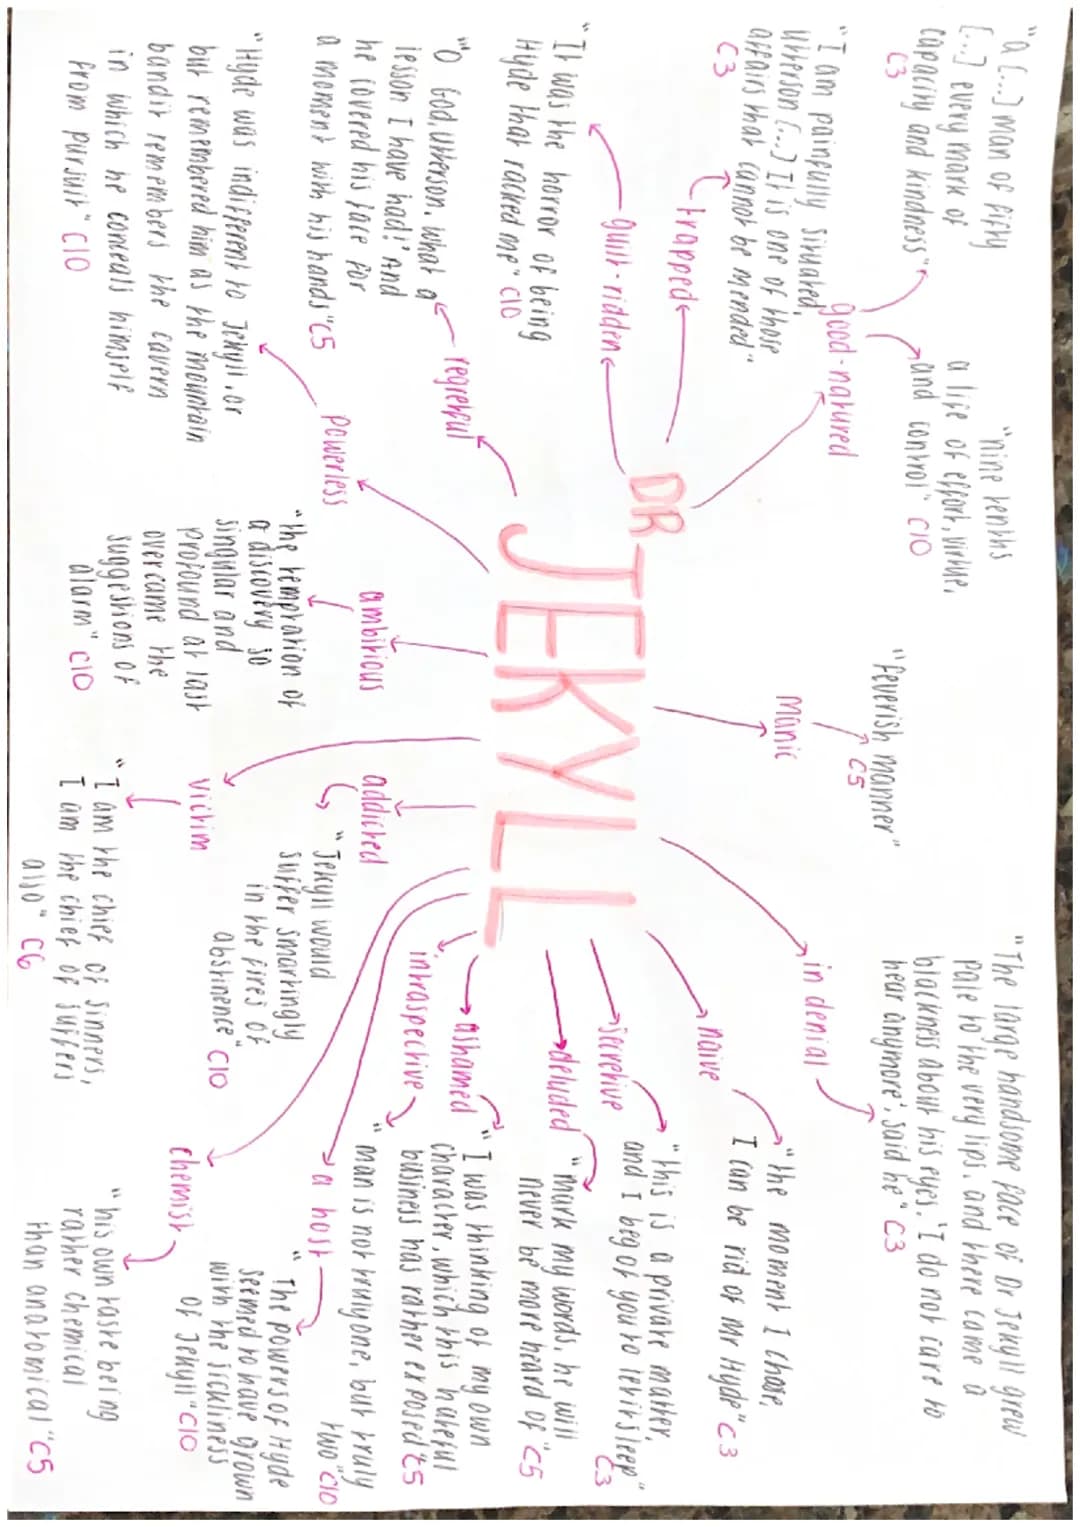 "a [...] man of fifty
[...] every mark of
capacity and kindness"
C3
"nine tenths
a life of effort, virtue,
and control" C10
good-natured
"I am painfully situated,
Utterson [...] It is one of those
affairs that cannot be mended"
C3
trapped
guilt-ridden
"It was the horror of being
Hyde that racked me" C10
"'O God, Utterson, what a
lesson I have had!' And
he covered his face for
a moment with his hands" C5
regretful
"Hyde was indifferent to Jekyll, or
but remembered him as the mountain
bandit remembers the cavern
in which he conceals himself
from pursuit" C10
powerless
DR
JEKYLL
"feverish manner"
C5
Manic
"the temptation of
a discovery so
singular and
profound at last
overcame the
suggestions of
alarm" C10
ambitious
victim
"I am the chief of sinners,
I am the chief of suffers
also" C6
addicted
"Jekyll would
suffer smartingly
in the fires of
abstinence" C10
"The large handsome face of Dr Jekyll grew
pale to the very lips, and there came a
blackness about his eyes. 'I do not care to
hear anymore', said he" C3
in denial
naive
"the moment I chose,
I can be rid of Mr Hyde" C3
secretive
"this is a private matter,
and I beg of you to let it sleep"
C3
deluded
"mark my words, he will
never be more heard of" C5
ashamed
"I was thinking of my own
character, which this hateful
business has rather exposed" C5
intraspective
"man is not truly one, but truly
two" C10
a host
"The powers of Hyde
seemed to have grown
with the sickliness
of Jekyll" C10
chemist
"his own taste being
rather chemical
than anatomical" C5